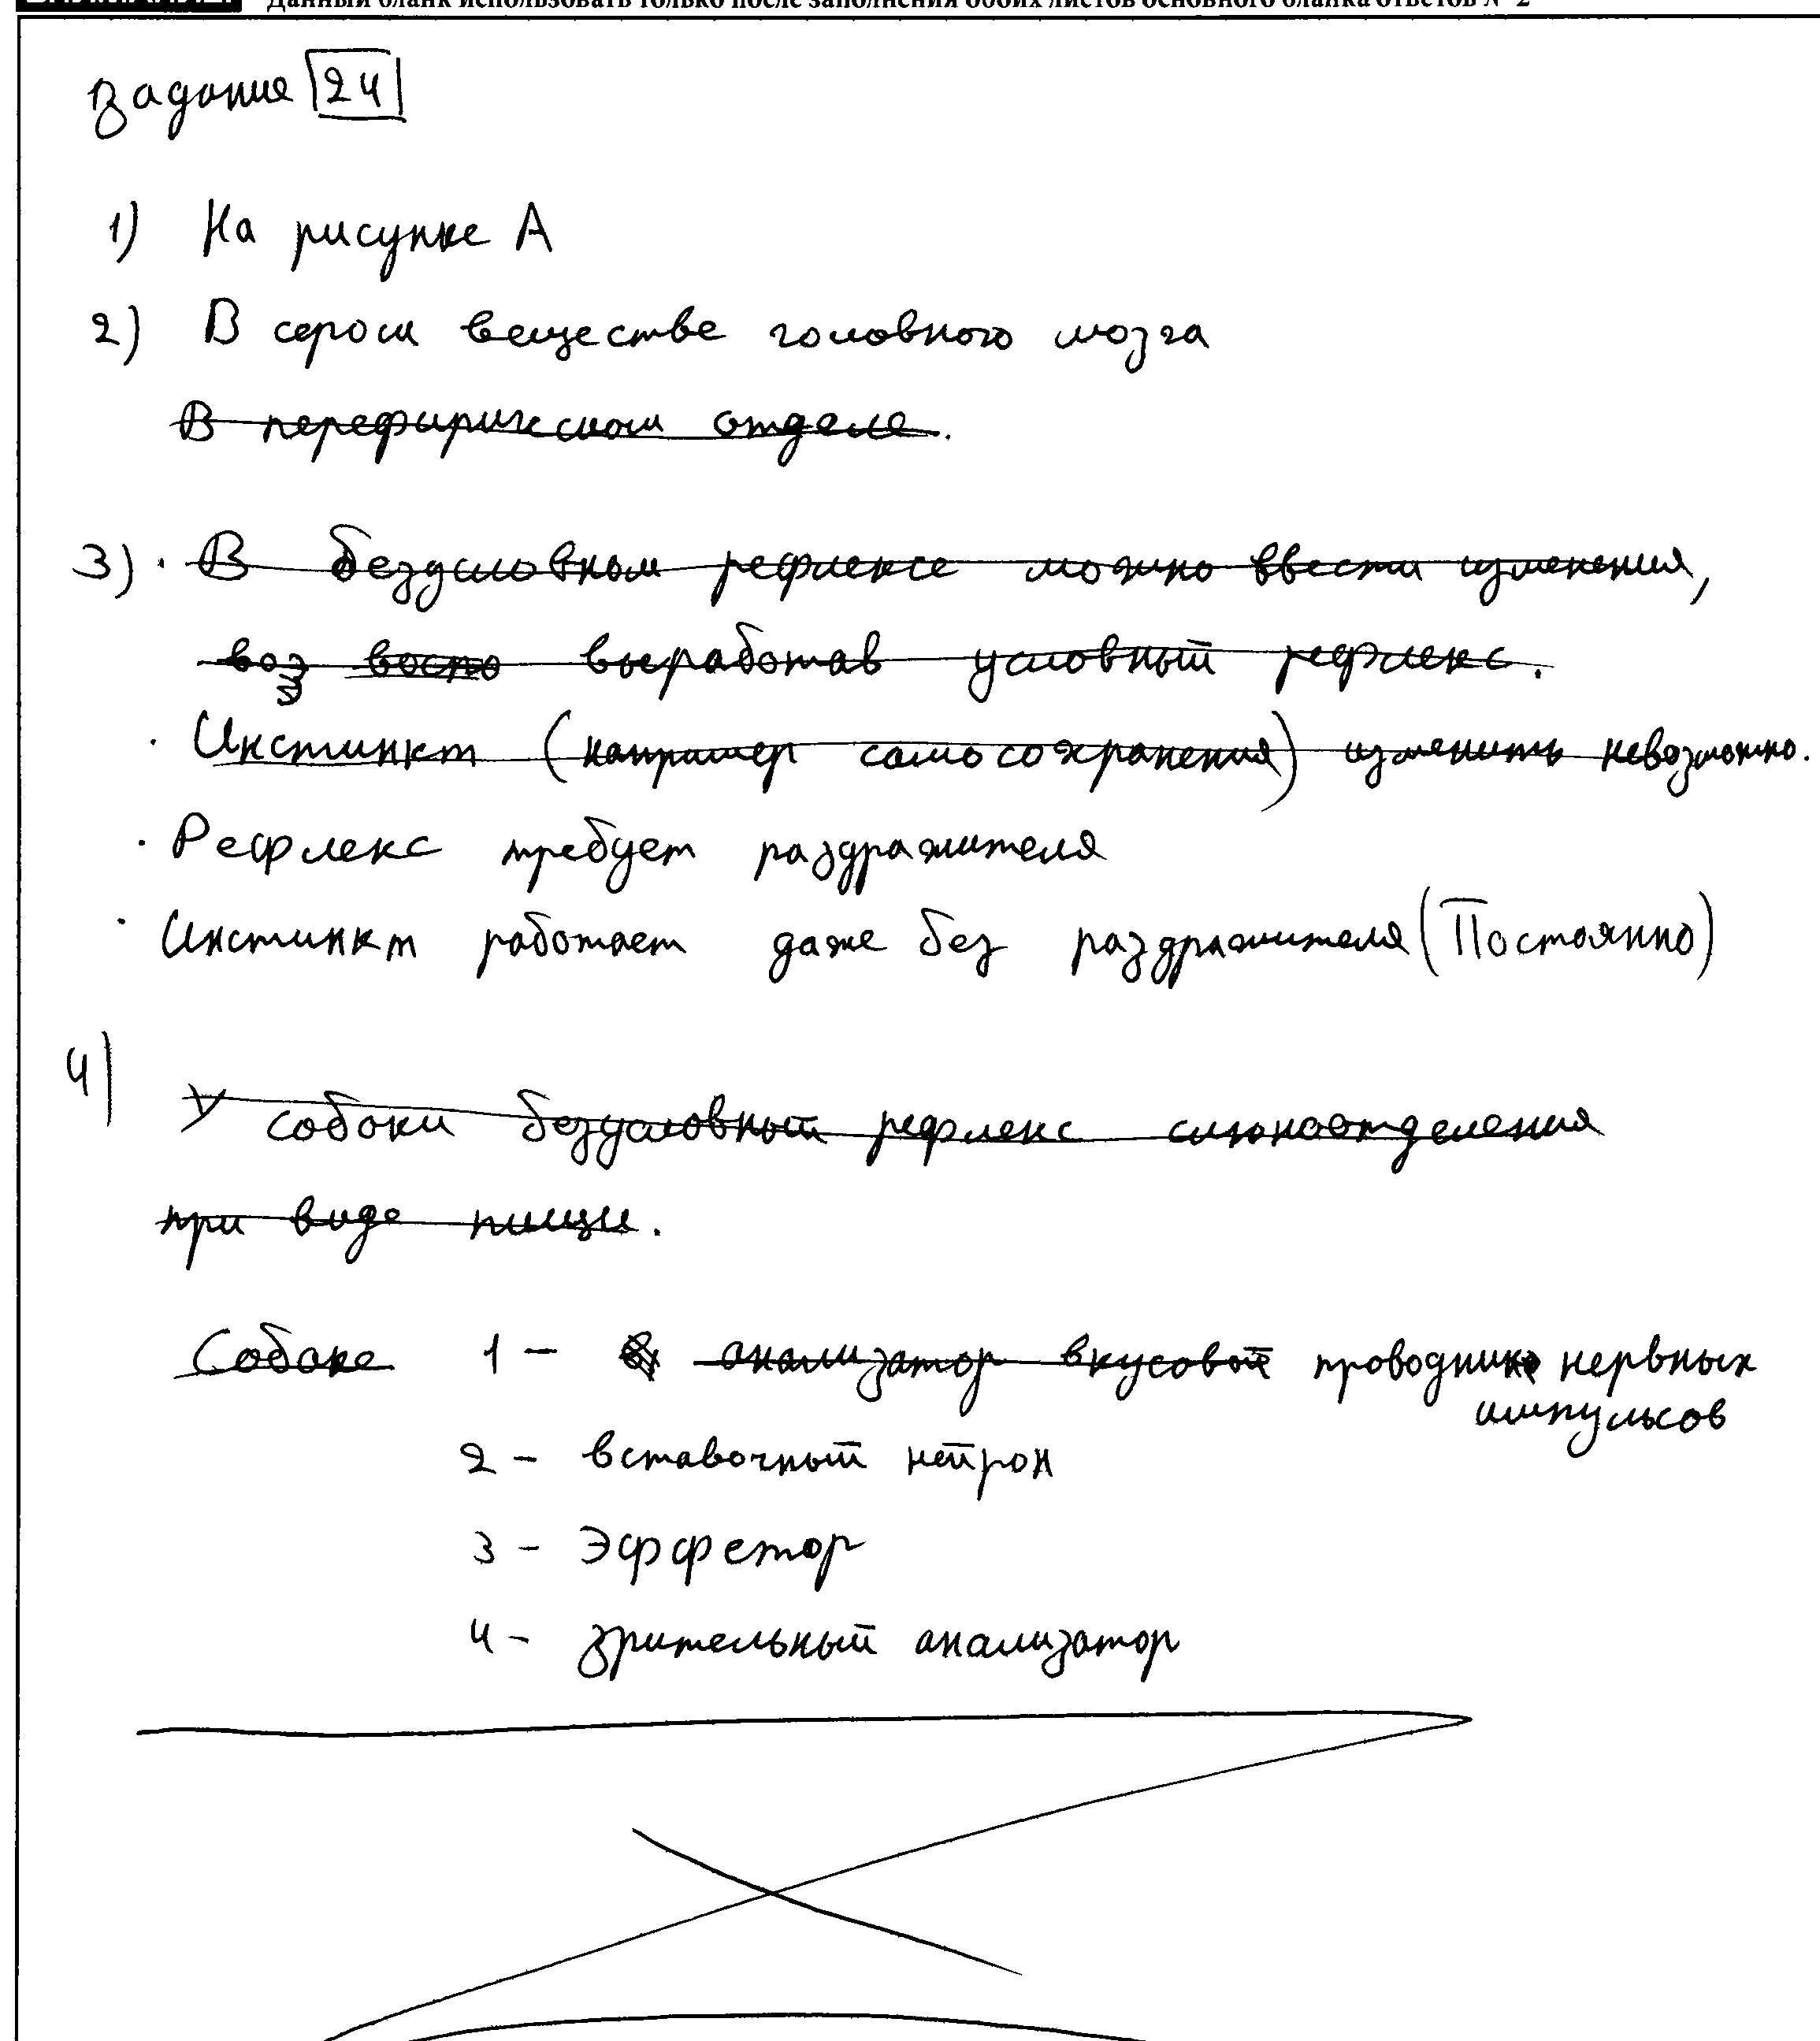 Данный бланк использовать только после заполнения обоих листов основного бланка ответов № 2
Задание 24
1) На рисунке А
2) В сером веществе головного мозга
В перефирическом отделе.
3) · В безусловном рефлексе можно ввести изменения,
воз воспо выработав условный рефлекс.
· Инстинкт (например самосохранения) изменить невозможно.
· Рефлекс требует раздражителя
· Инстинкт работает даже без раздражителя (Постоянно)
4) У собаки безусловный рефлекс слюноотделения
при виде пищи.
Собаке 1 - анализатор вкусовой проводник нервных
импульсов
2 - вставочный нейрон
3 - Эффетор
4 - зрительный анализатор